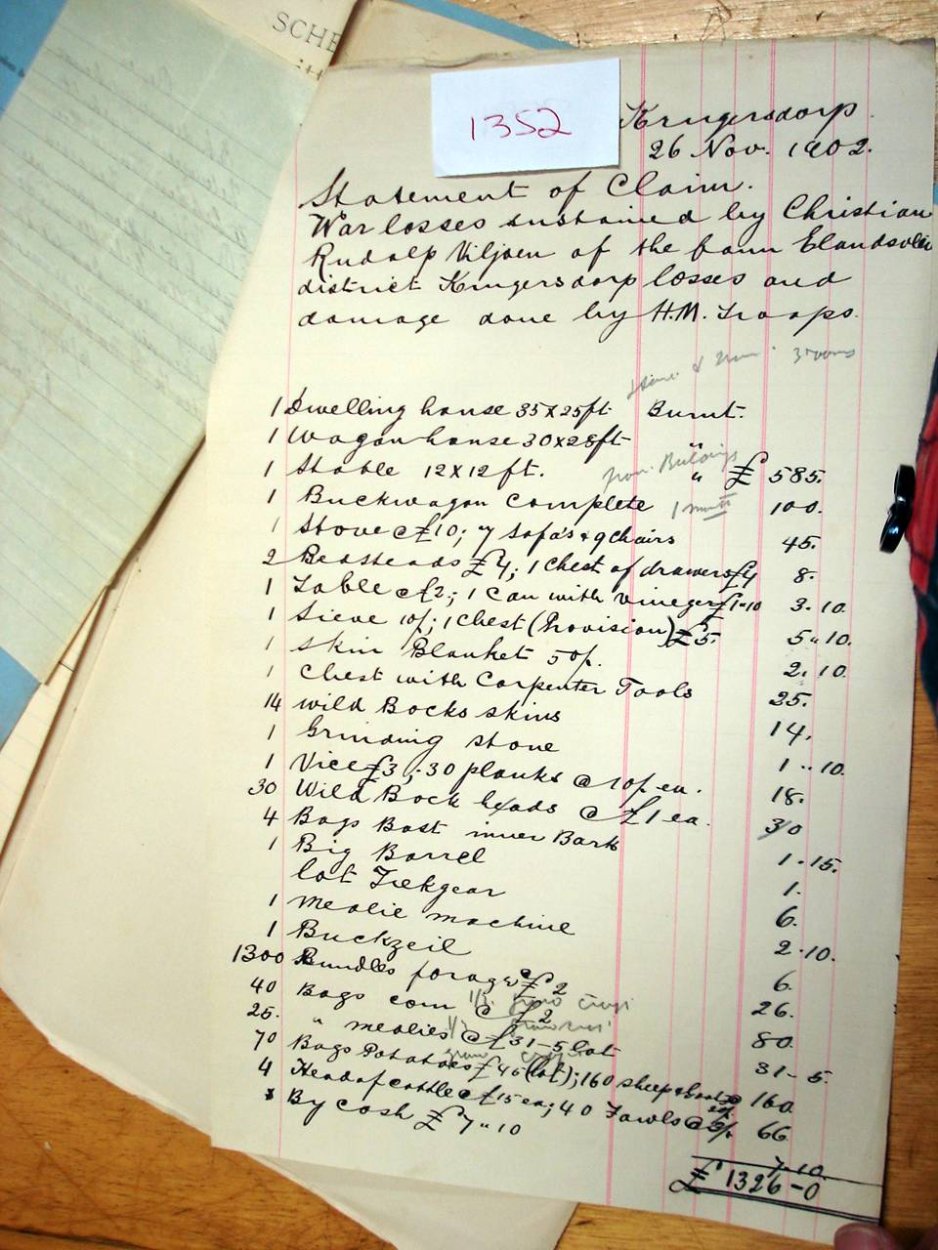 SCHE
1352
Krugersdorp.
26 Nov. 1902.
Statement of Claim.
War losses sustained by Christian
Rudolp Viljoen of the farm Elandsvlei
district Krugersdorp losses and
damage done by H.M. Troops.
3 rooms
1 Dwelling house 35 x 25 ft. Burnt.
1 Wagon house 30 x 28 ft "
1 Stable 12 x 12 ft. " £ 585.
from Buildings
1 Buckwagon complete 100.
1 Stove @ £10; 7 sofa's + 9 chairs 45.
2 Bedsteads £4; 1 chest of drawers £4 8.
1 Table @ £2; 1 Can with vineger £1-10 3.10.
1 Sieve 10/; 1 chest (Provision) £5. 5"10.
1 Skin Blanket 50/. 2.10.
1 Chest with Carpenter Tools 25.
14 wild Bocks skins 14.
1 Grinding stone 1"10.
1 Vice £3; 30 planks @ 10/. ea. 18.
30 Wild Bock heads @ £1 ea. 30
4 Bags Bast inner Bark 1.15.
1 Big Barrel 1.
lot Trekgear 6.
1 mealie machine 2.10.
1 Buckzeil 6.
1300 Bundles forage @ £2 26.
40 Bags corn @ £2 80.
25. " mealies @ £31-5 lot 31-5.
70 Bags Potatoes £45 (lot); 160 sheep 160
4 Head of cattle @ £15 ea; 40 Fowls @ 3/. 66
By cash £7"10 7-10.
£ 1326-0